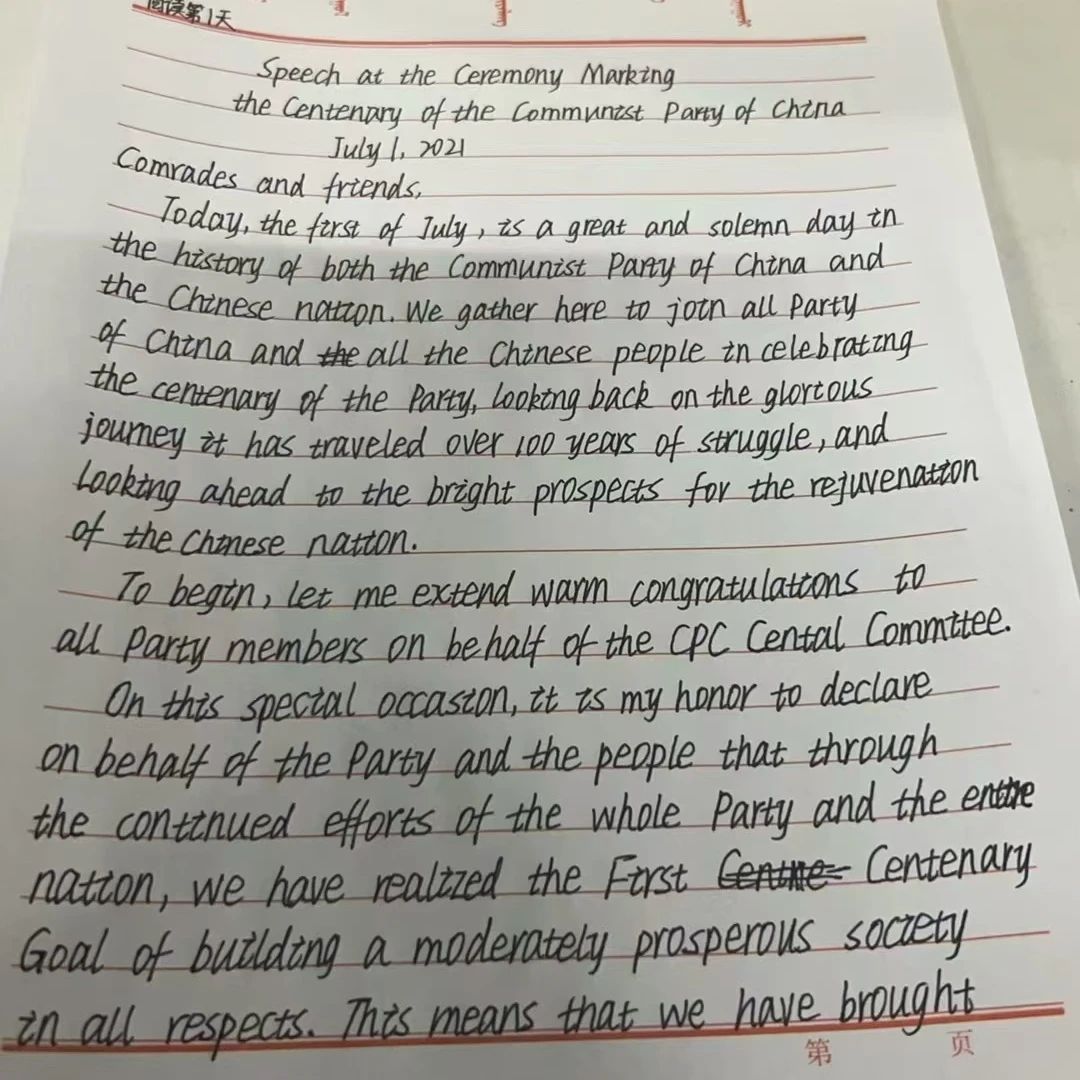 阅读第1天
Speech at the Ceremony Marking
the Centenary of the Communist Party of China
July 1, 2021
Comrades and friends,
Today, the first of July, is a great and solemn day in
the history of both the Communist Party of China and
the Chinese nation. We gather here to join all Party
of China and the all the Chinese people in celebrating
the centenary of the Party, looking back on the glorious
journey it has traveled over 100 years of struggle, and
looking ahead to the bright prospects for the rejuvenation
of the Chinese nation.
To begin, let me extend warm congratulations to
all Party members on behalf of the CPC Cental Committee.
On this special occasion, it is my honor to declare
on behalf of the Party and the people that through
the continued efforts of the whole Party and the entire
nation, we have realized the First Centenary
Goal of building a moderately prosperous society
in all respects. This means that we have brought
第 页